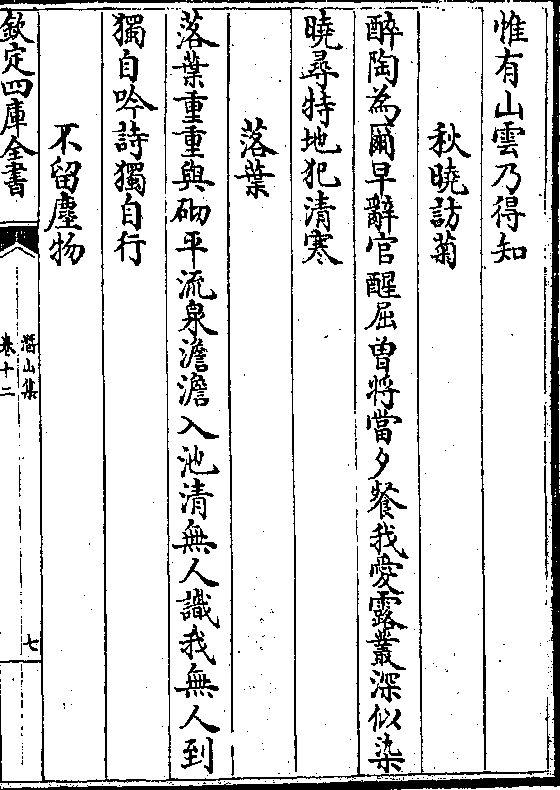 惟有山雲乃得知
秋曉訪菊
醉陶為爾早辭官醒屈曾將當夕餐我愛露叢深似染
曉尋特地犯清寒
落葉
落葉重重與砌平流泉澹澹入池清無人識我無人到
獨自吟詩獨自行
不留塵物
欽定四庫全書
潛山集
卷十二
七